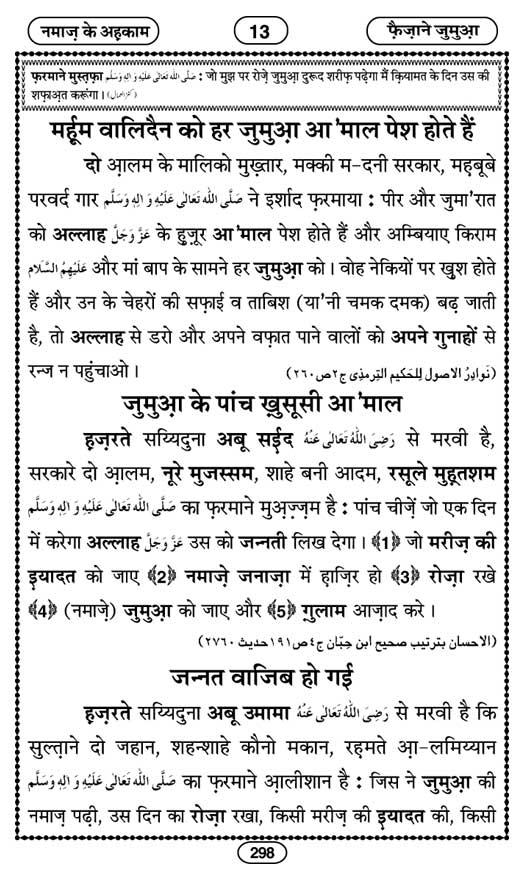 नमाज़ के अह़काम
13
फ़ैज़ाने जुमुआ़
फ़रमाने मुस्त़फ़ा صَلَّى اللهُ تَعَالٰى عَلَيْهِ وَاٰلِهٖ وَسَلَّم : जो मुझ पर रोज़े जुमुआ़ दुरूद शरीफ़ पढ़ेगा मैं क़ियामत के दिन उस की
शफ़ाअ़त करूंगा। (كنز العمال)
मर्हूम वालिदैन को हर जुमुआ़ आ 'माल पेश होते हैं
दो आ़लम के मालिको मुख़्तार, मक्की म-दनी सरकार, मह़बूबे
परवर्द गार صَلَّى اللهُ تَعَالٰى عَلَيْهِ وَاٰلِهٖ وَسَلَّم ने इर्शाद फ़रमाया : पीर और जुमा'रात
को अल्लाह عَزَّوَجَلَّ के ह़ुज़ूर आ 'माल पेश होते हैं और अम्बियाए किराम
عَلَيْهِمُ السَّلَام और मां बाप के सामने हर जुमुआ़ को। वोह नेकियों पर ख़ुश होते
हैं और उन के चेहरों की सफ़ाई व ताबिश (या'नी चमक दमक) बढ़ जाती
है, तो अल्लाह से डरो और अपने वफ़ात पाने वालों को अपने गुनाहों से
रन्ज न पहुंचाओ। (نَوادِرُ الاصول لِلحَكيم التِرمِذى ج٢ص٢٦٠)
जुमुआ़ के पांच ख़ुसूसी आ 'माल
ह़ज़रते सय्यिदुना अबू सई़द رَضِىَ اللهُ تَعَالٰى عَنْهُ से मरवी है,
सरकारे दो आ़लम, नूरे मुजस्सम, शाहे बनी आदम, रसूले मुह़्तशम
صَلَّى اللهُ تَعَالٰى عَلَيْهِ وَاٰلِهٖ وَسَلَّم का फ़रमाने मुअ़ज़्ज़म है : पांच चीज़ें जो एक दिन
में करेगा अल्लाह عَزَّوَجَلَّ उस को जन्नती लिख देगा। ﴾1﴿ जो मरीज़ की
इ़यादत को जाए ﴾2﴿ नमाज़े जनाज़ा में ह़ाज़िर हो ﴾3﴿ रोज़ा रखे
﴾4﴿ (नमाज़े) जुमुआ़ को जाए और ﴾5﴿ ग़ुलाम आज़ाद करे।
(الاحسان بترتيب صحيح ابن حِبّان ج٤ص١٩١حديث ٢٧٦٠)
जन्नत वाजिब हो गई
ह़ज़रते सय्यिदुना अबू उमामा رَضِىَ اللهُ تَعَالٰى عَنْهُ से मरवी है कि
सुल्त़ाने दो जहान, शहन्शाहे कौनो मकान, रह़मते आ़-लमिय्यान
صَلَّى اللهُ تَعَالٰى عَلَيْهِ وَاٰلِهٖ وَسَلَّم का फ़रमाने आ़लीशान है : जिस ने जुमुआ़ की
नमाज़ पढ़ी, उस दिन का रोज़ा रखा, किसी मरीज़ की इ़यादत की, किसी
298